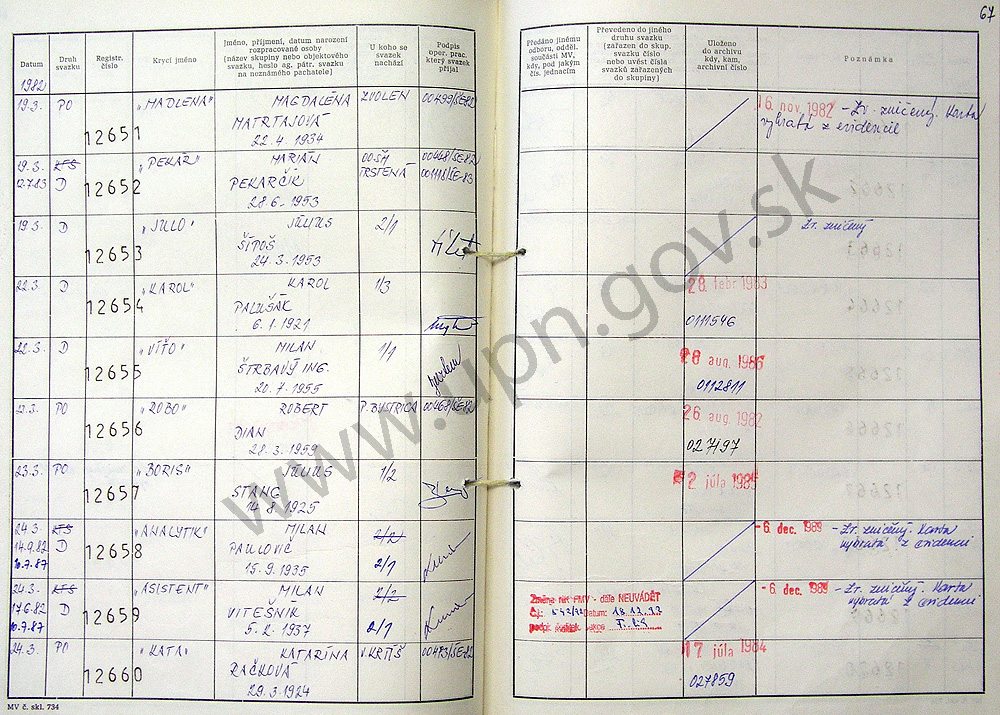 67
Datum
Druh svazku
Registr. číslo
Krycí jméno
Jméno, příjmení, datum narození
rozpracované osoby
(název skupiny nebo objektového
svazku, heslo ag. pátr. svazku
na neznámého pachatele)
U koho se
svazek
nachází
Podpis
oper. prac.
který svazek
přijal
Předáno jinému
odboru, odděl.
součásti MV,
kdy, pod jakým
čís. jednacím
Převedeno do jiného
druhu svazku
(zařazen do skup.
svazku číslo
nebo uvést čísla
svazků zařazených
do skupiny)
Uloženo
do archivu
kdy, kam,
archivní číslo
Poznámka
1982
19.3. PO 12651 "MADLENA" MAGDALÉNA ZVOLEN 00499/ŠE-82
MATRTAJOVÁ
22.4. 1934
16. nov. 1982 - Zv. zničený. Karta
vybratá z evidencie
19.3. KTS 12652 "PEKÁR" MARIÁN OO ŠtB 00448/ŠE-82
12.7.83 D PEKARČÍK TRSTENÁ 001118/ŠE-83
28.6. 1953
19.3. D 12653 "JULO" JÚLIUS 2/1
ŠÍPOŠ
24.3. 1953
Zv. zničený
22.3. D 12654 "KAROL" KAROL 1/3
PALUŠÁK
6.1. 1921
28. febr. 1983
0111546
22.3. D 12655 "VÍŤO" MILAN 1/1
ŠTRBAVÝ ING.
20.7. 1955
28 aug. 1986
0112811
22.3. PO 12656 "ROBO" ROBERT P. BYSTRICA 00468/ŠE-82
DIAN
28.3. 1959
26. aug. 1982
027197
23.3. PO 12657 "BORIS" JÚLIUS 1/2
STANG
14.8. 1925
2 júla 1985
24.3. KTS 12658 "ANALYTIK" MILAN 2/2
14.9.82 D PAULOVIČ 2/1
10.7.87 15.9. 1935
- 6. dec. 1989 - Zv. zničený. Karta
vybratá z evidencie
24.3. KTS 12659 "ASISTENT" MILAN 2/2
17.6.82 D VITEŠNIK 2/1
10.7.87 5.2. 1937
NEUVÁDĚT
- 6. dec. 1989 - Zv. zničený. Karta
vybratá z evidencie
24.3. PO 12660 "KATA" KATARÍNA V. KRTÍŠ 00473/ŠE-82
RAČKOVÁ
29.3. 1924
17 júla 1984
027859
MV č. skl. 734
www.upn.gov.sk